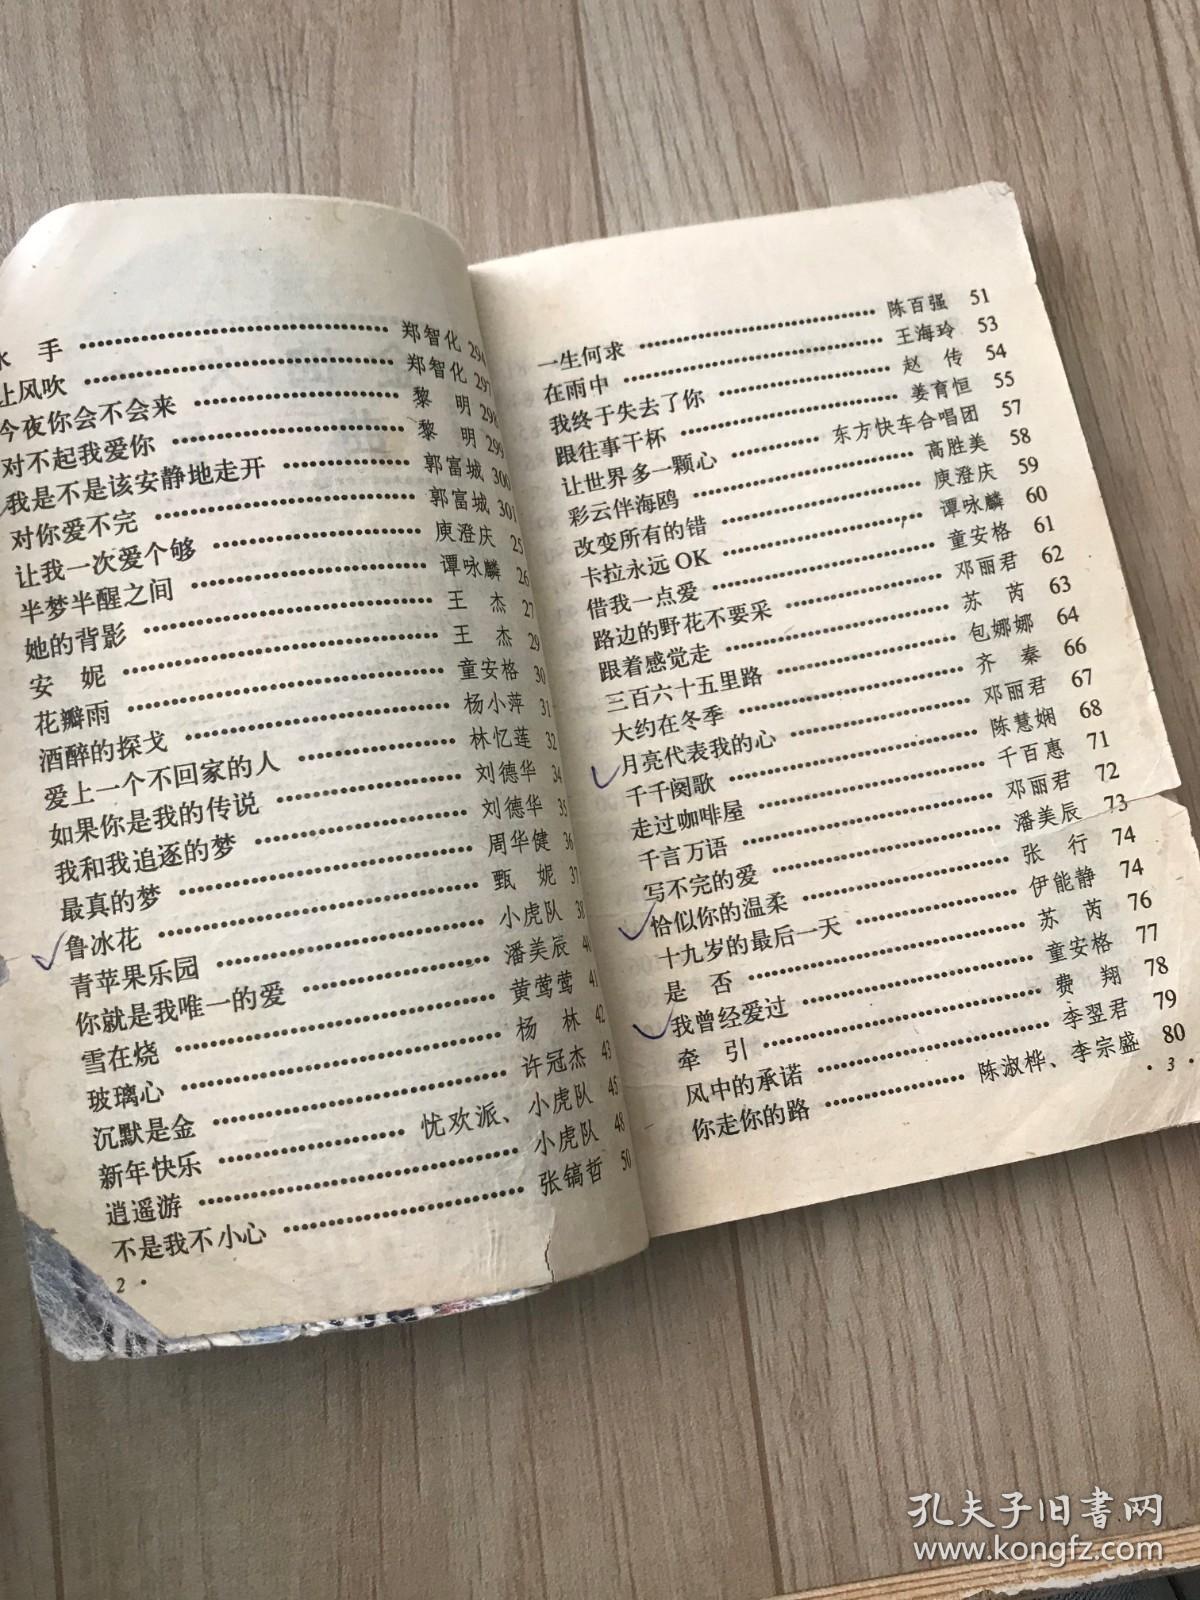 水 手 …… 郑智化 294
让风吹 …… 郑智化 297
今夜你会不会来 …… 黎 明 298
对不起我爱你 …… 黎 明 299
我是不是该安静地走开 …… 郭富城 300
对你爱不完 …… 郭富城 301
让我一次爱个够 …… 庾澄庆 25
半梦半醒之间 …… 谭咏麟 26
她的背影 …… 王 杰 27
安 妮 …… 王 杰 29
花瓣雨 …… 童安格 30
酒醉的探戈 …… 杨小萍 31
爱上一个不回家的人 …… 林忆莲 32
如果你是我的传说 …… 刘德华 34
我和我追逐的梦 …… 刘德华 35
最真的梦 …… 周华健 36
鲁冰花 …… 甄 妮 37
青苹果乐园 …… 小虎队 38
你就是我唯一的爱 …… 潘美辰 40
雪在烧 …… 黄莺莺 41
玻璃心 …… 杨 林 42
沉默是金 …… 许冠杰 43
新年快乐 …… 忧欢派、小虎队 45
逍遥游 …… 小虎队 48
不是我不小心 …… 张镐哲 50
2 ·
一生何求 …… 陈百强 51
在雨中 …… 王海玲 53
我终于失去了你 …… 赵 传 54
跟往事干杯 …… 姜育恒 55
让世界多一颗心 …… 东方快车合唱团 57
彩云伴海鸥 …… 高胜美 58
改变所有的错 …… 庾澄庆 59
卡拉永远OK …… 谭咏麟 60
借我一点爱 …… 童安格 61
路边的野花不要采 …… 邓丽君 62
跟着感觉走 …… 苏 芮 63
三百六十五里路 …… 包娜娜 64
大约在冬季 …… 齐 秦 66
月亮代表我的心 …… 邓丽君 67
千千阕歌 …… 陈慧娴 68
走过咖啡屋 …… 千百惠 71
千言万语 …… 邓丽君 72
写不完的爱 …… 潘美辰 73
恰似你的温柔 …… 张 行 74
十九岁的最后一天 …… 伊能静 74
是 否 …… 苏 芮 76
我曾经爱过 …… 童安格 77
牵 引 …… 费 翔 78
风中的承诺 …… 李翌君 79
你走你的路 …… 陈淑桦、李宗盛 80
· 3 ·
孔夫子旧书网
www.kongfz.com